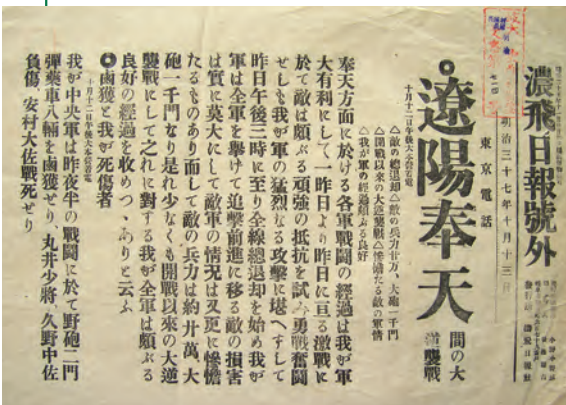 濃飛日報號外
明治三十七年十月十三日
東京電話
◎遼陽奉天間の大逆襲戰
十月十二日午後大本營着電
△敵の總退却△敵の兵力廿万、大砲一千門
△開戰以來の大逆襲戰△慘憺たる敵の軍情
△我が軍の經過頗ぶる良好
奉天方面に於ける各軍戰鬪の經過は我が軍
大有利にして一昨日より昨日に亘る激戰に
於て敵は頗ぶる頑強の抵抗を試み勇戰奮鬪
せしも我が軍の猛烈なる攻擊に堪へずして
昨日午後三時に至り全線總退却を始め我が
軍は全軍を擧げて追擊前進に移る敵の損害
は實に莫大にして敵軍の情況は又更に慘憺
たるものあり而して敵の兵力は約廿萬、大
砲一千門なり是れ少なくも開戰以來の大逆
襲戰にして之れに對する我が全軍は頗ぶる
良好の經過を收めつゝありと云ふ
◎鹵獲と我が死傷者
十月十二日午後大本營着電
我が中央軍は昨夜半の戰鬪に於て野砲二門
彈藥車八輛を鹵獲せり丸井少將、久野中佐
負傷、安村大佐戰死せり